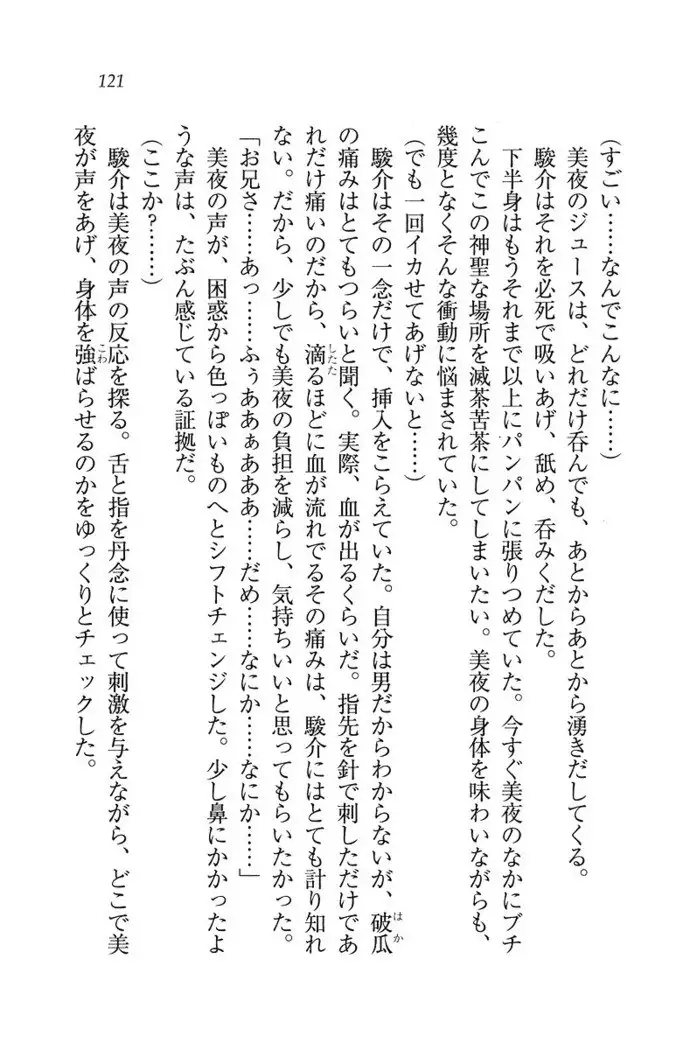 121
(すごい……なんでこんなに……)
美夜のジュースは、どれだけ呑んでも、あとからあとから湧きだしてくる。
駿介はそれを必死で吸いあげ、舐め、呑みくだした。
下半身はもうそれまで以上にパンパンに張りつめていた。今すぐ美夜のなかにブチ
こんでこの神聖な場所を滅茶苦茶にしてしまいたい。美夜の身体を味わいながらも、
幾度となくそんな衝動に悩まされていた。
(でも一回イカせてあげないと……)
駿介はその一念だけで、挿入をこらえていた。自分は男だからわからないが、破瓜
の痛みはとてもつらいと聞く。実際、血が出るくらいだ。指先を針で刺しただけであ
れだけ痛いのだから、滴るほどに血が流れでるその痛みは、駿介にはとても計り知れ
ない。だから、少しでも美夜の負担を減らし、気持ちいいと思ってもらいたかった。
「お兄さ……あっ……ふぅああぁあああ……だめ……なにか……なにか……」
美夜の声が、困惑から色っぽいものへとシフトチェンジした。少し鼻にかかったよ
うな声は、たぶん感じている証拠だ。
(ここか?……)
駿介は美夜の声の反応を探る。舌と指を丹念に使って刺激を与えながら、どこで美
夜が声をあげ、身体を強ばらせるのかをゆっくりとチェックした。